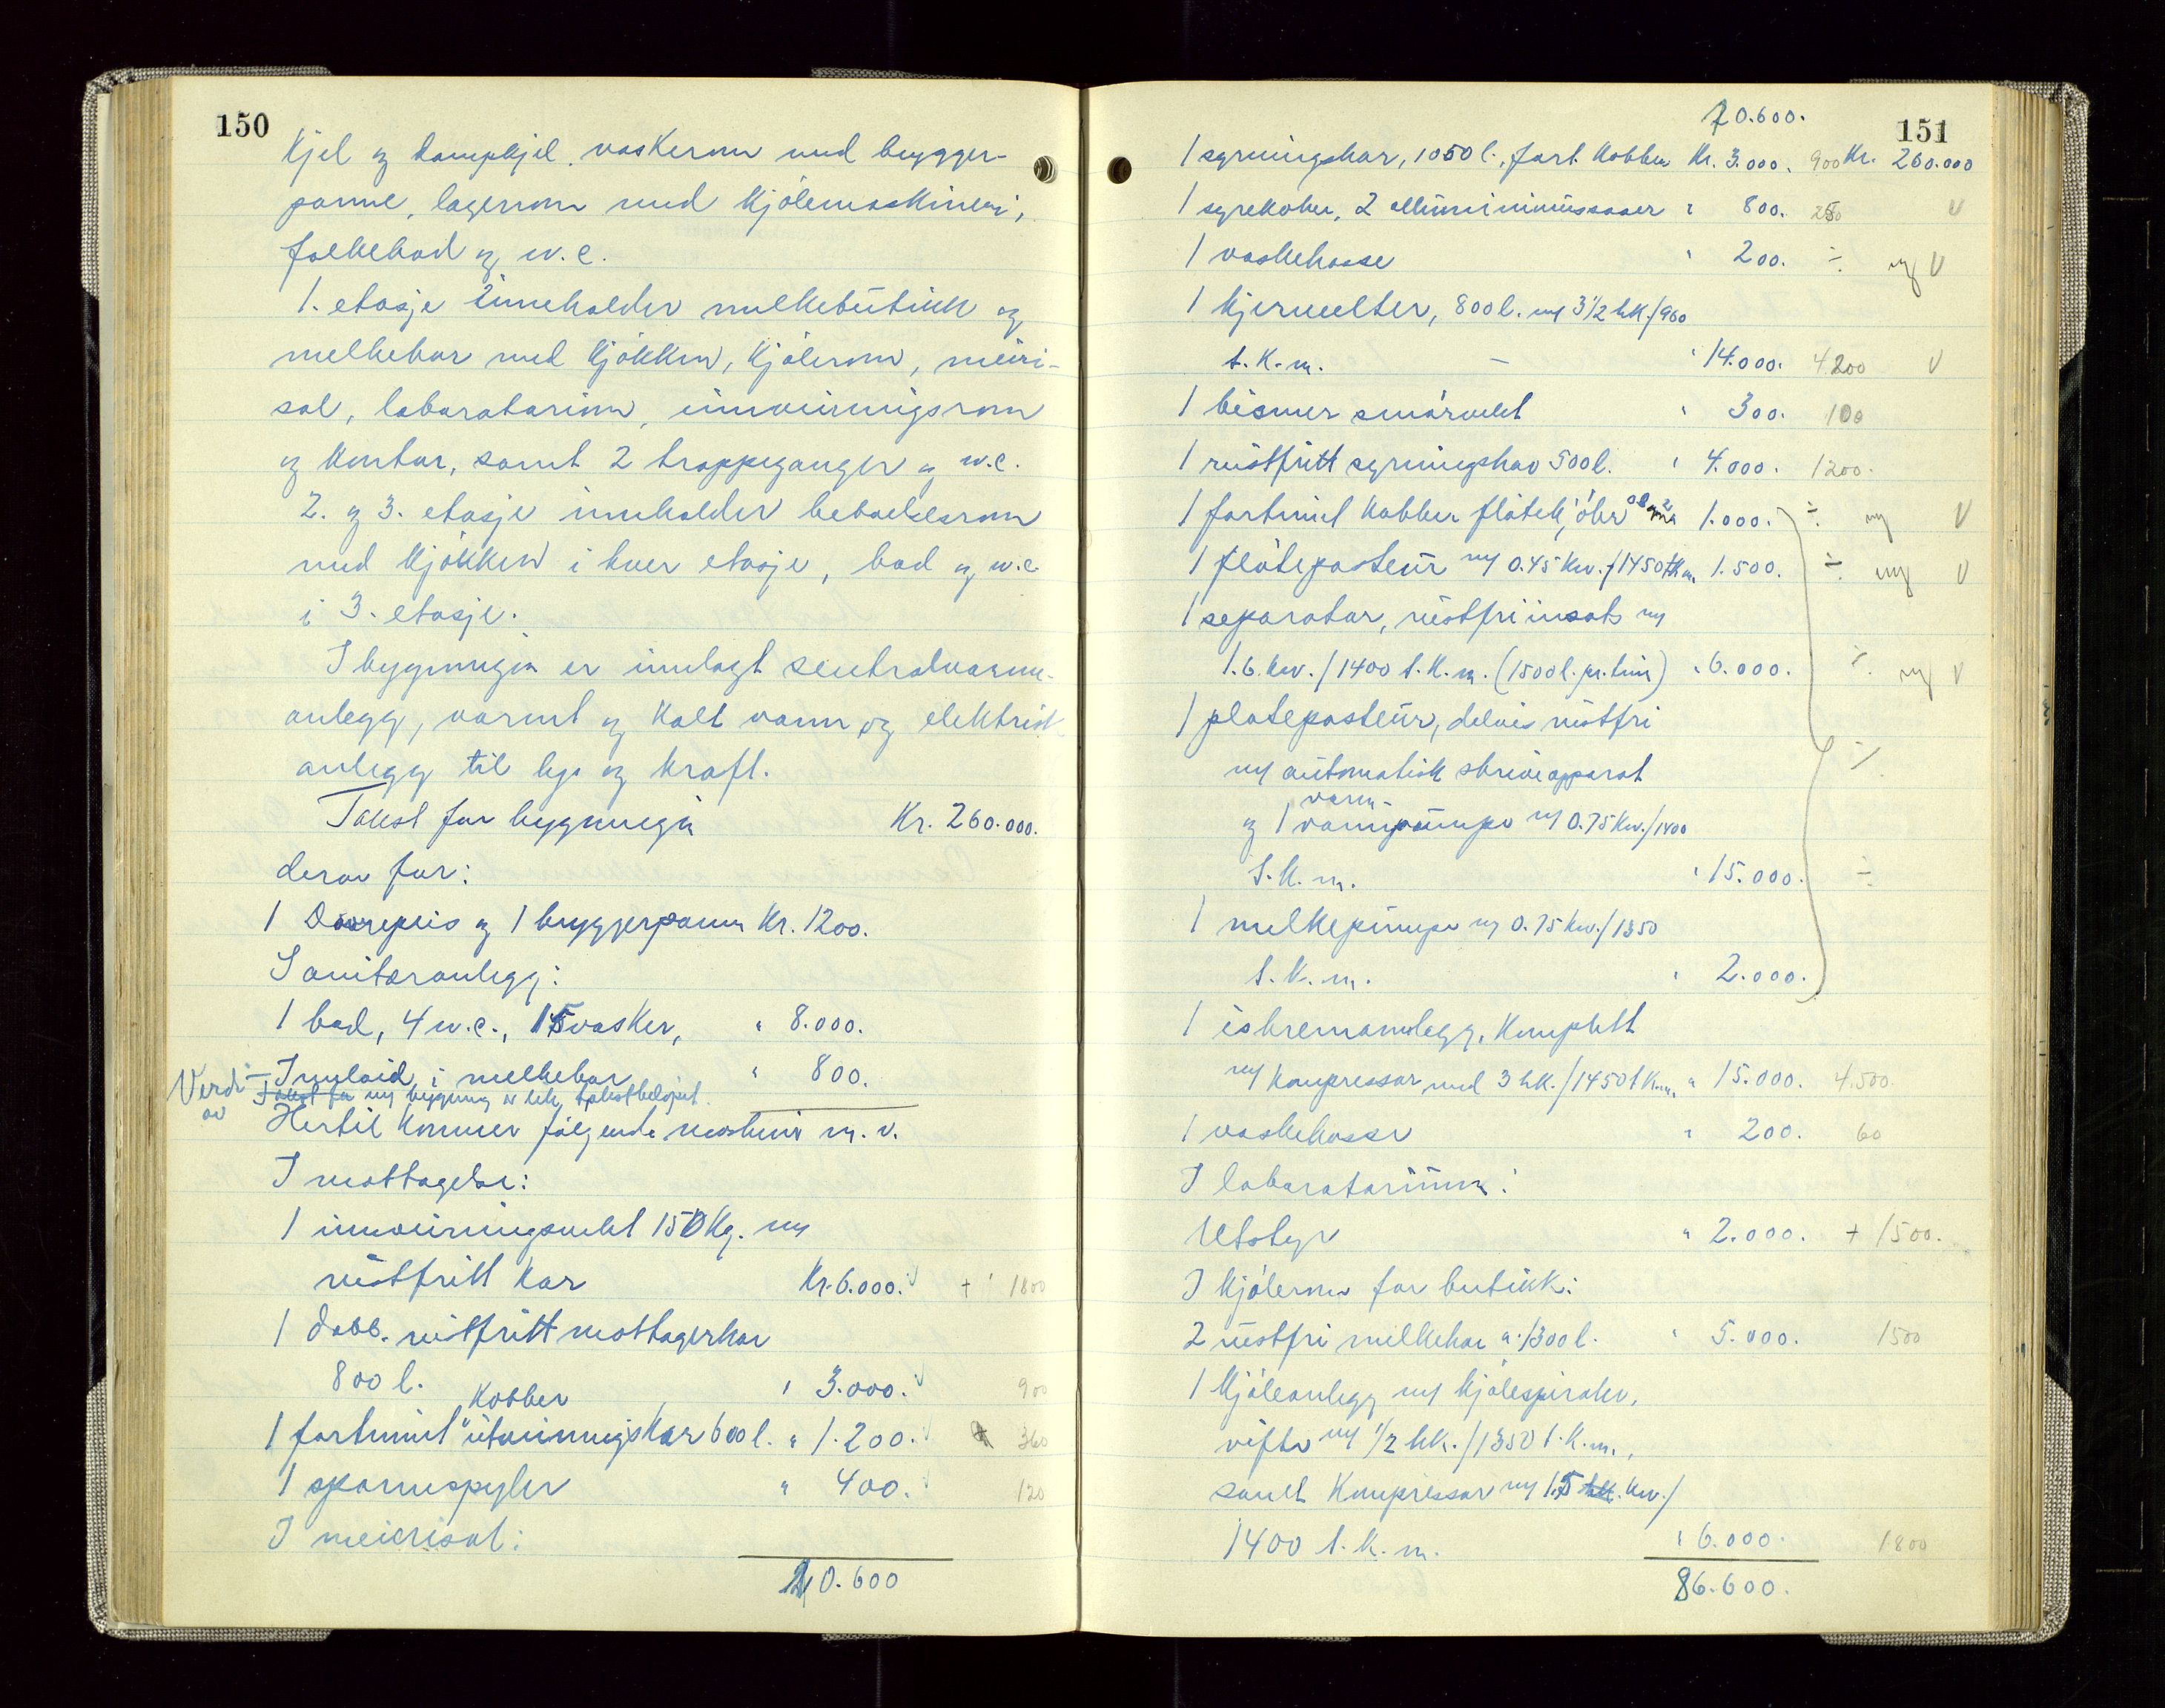 150
Kjel og dampkjel, vaskerom med brygger-
panne, lagerrom med kjölemaskineri,
folkebad og w.c.
1. etasje inneholder melkebutikk og
melkebar med kjökken, kjölerom, meieri-
sal, laboratorium, innveiningsrom
og kontor, samt 2 trappeganger og w.c.
2. og 3. etasje inneholder beboelsesrom
med kjökken i hver etasje, bad og w.c.
i 3. etasje.
I bygningen er innlagt sentralvarme-
anlegg, varmt og kalt vann og elektrisk
anlegg til lys og kraft.
Takst for bygningen Kr. 260.000.
derav for:
1 Dovrepeis og 1 bryggerpanne Kr. 1200.
Sanitæranlegg:
1 bad, 4 w.c., 15 vasker, " 8.000.
Innlaid i melkebar " 800.
Verdi av Takst for ny bygning er lik takstbelöpet.
Hertil kommer fölgende maskiner m.v.
I mottagelse:
1 innveiningsvekt 150 Kg. m/
rüstfritt kar Kr. 6.000. √ + 1800
1 dobb. rüstfritt mottagerkar
800 l. " 3.000. √ 900
Kobber
1 fortinnet " ütveiningskar 600 l. " 1.200. √ + 360
1 spannspyler " 400. √ 120
I meierisal:
10.600
70.600.
151
1 syrningskar, 1050 l., fort. kobber Kr. 3.000. 900 Kr. 260.000
1 syrekoker, 2 alluminiumsspann " 800. 250 V
1 vaskekasse " 200. ÷ ny V
1 kjerneelter, 800 l. m/ 3 1/2 hk./960
t.k.m. — " 14.000. 4200 V
1 bismer smörvekt " 300. 100
1 rüstfritt syrningskar 500 l. " 4.000. 1200.
1 fortinnet kobber flötekjöler 1.000. ÷ ny V
1 flötepasteur m/ 0.45 Kw./1450 t.k.m. 1.500. ÷ ny V
1 separator, rüstfri innsats m/
1.6 Kw./1400 t.k.m. (1500 l. pr. time) " 6.000. ÷ ny V
1 platepasteur, delvis rüstfri
m/ automatisk skriveapparat ÷
varm-
og 1 vannpumpe m/ 0.75 Kw./1400
t.k.m. " 15.000. ÷
1 melkepumpe m/ 0.75 Kw./1350
t.k.m. " 2.000.
1 iskremanlegg, komplett
m/ kompressor med 3 hk./1450 t.k.m. " 15.000. 4.500.
1 vaskekasse " 200. 60
I laboratorium:
Utstyr " 2.000. + 1500.
I kjölerom for butikk:
2 rüstfri melkekar a. 1300 l. " 5.000. 1500
1 kjöleanlegg m/ kjölespiraler,
vifte m/ 1/2 hk./1350 t.k.m.,
samt kompressor m/ 1,5 hk. kw./
1400 t.k.m. " 6.000. 1800
86.600.